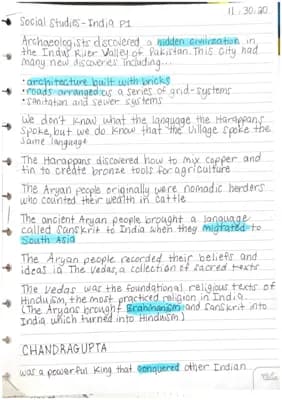 11.30.20
Social Studies-India P1
Archaeologists discovered a hidden civilization in
the Indus River Valley of Pakistan. This city had
many new discoveries including...
• architecture built with bricks
• roads arranged as a series of grid-systems
• sanitation and sewer systems
We don't know what the language the Harappans
spoke, but we do know that the village spoke the
same language
The Harappans discovered how to mix copper and
tin to create bronze tools for agriculture
The Aryan people originally were nomadic herders
who counted their wealth in cattle
The ancient Aryan people brought a language
called sanskrit to India when they migrated to
South Asia
The Aryan people recorded their beliefs and
ideas in The Vedas, a collection of sacred texts
The Vedas was the foundational religious texts of
Hinduism, the most practiced religion in India
(The Aryans brought Brahmanism and sanskrit into
India which turned into Hinduism)
CHANDRAGUPTA
was a powerful king that conquered other Indian